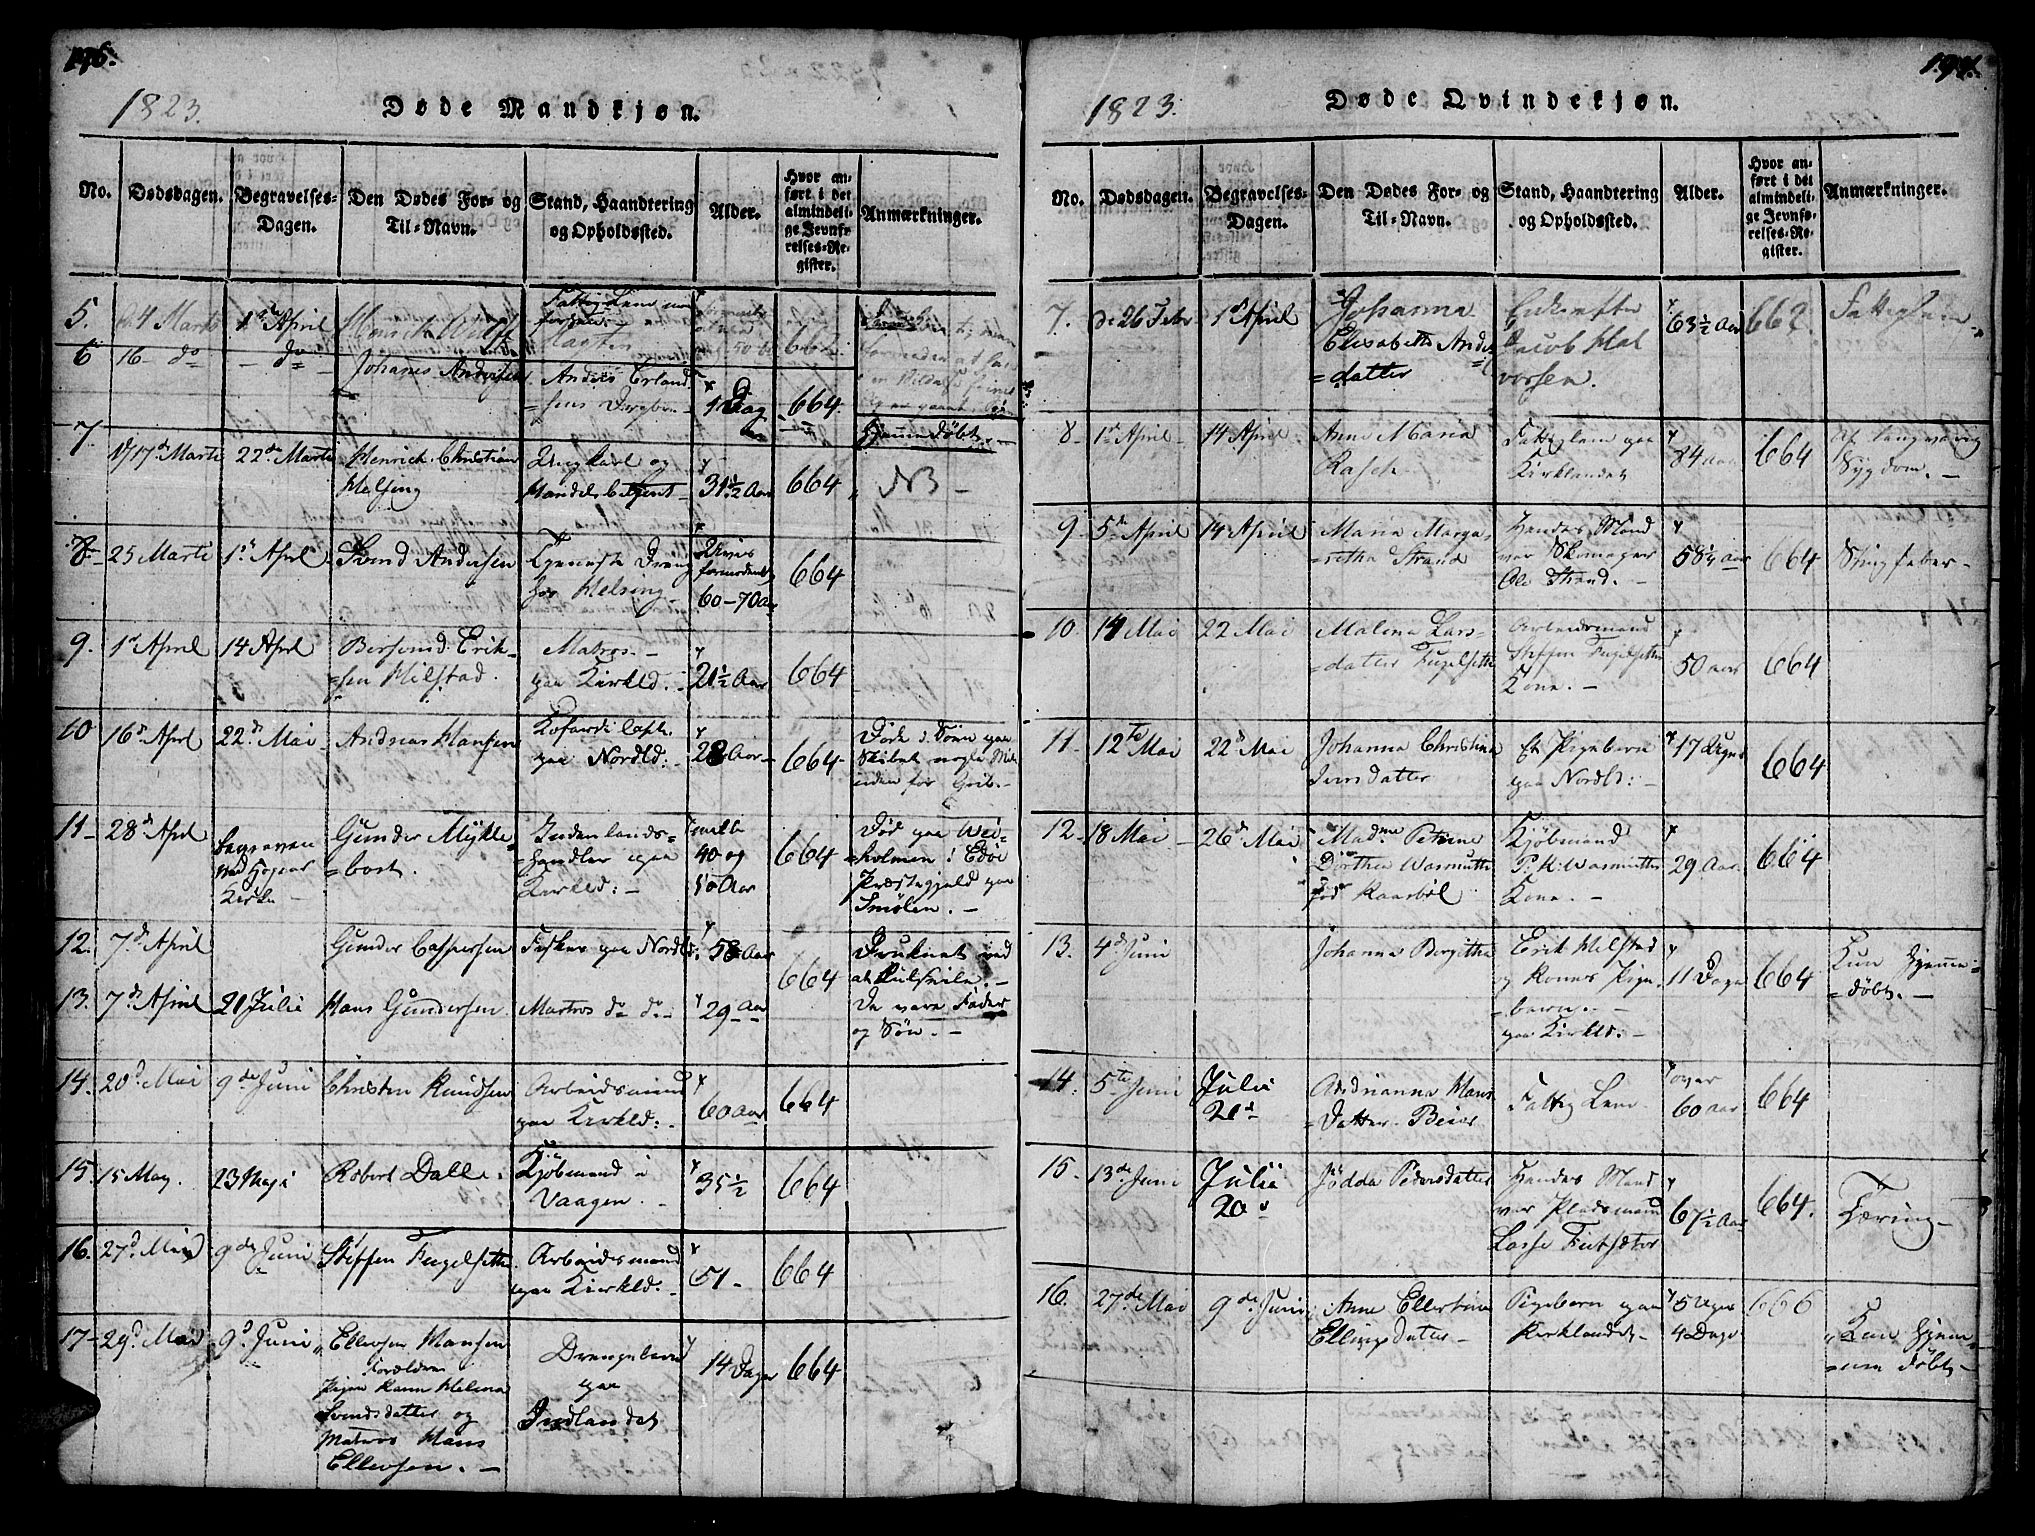 196.
1823.
Døde Mandkjøn.
No.
Dødsdagen.
Begravelses-
Dagen.
Den Dødes For- og
Til-Navn.
Stand, Haandtering
og Opholdssted.
Alder.
Hvor an-
ført i det
almindeli-
ge Jevnfø-
relses-Re-
gister.
Anmærkninger.
5.
4 Marts
1st April
Henrich
Fattig Lem
6
16 do
do
Johanes Andersen
Anders Erland
sens
1 Dag
664.
Hjemmedøbt.
7.
17de Marti
22de Marti
Henrich Christian
Helsing
og
31½ Aar
664
NB
8
25 Marti
1st April
Svend Andersen
Tjeneste Dreng
hos Helsing
60-70 Aar
664
9.
1st April
14 April
Erik-
sen Hilstad.
Matros
paa Kirkld.
21½ Aar
664
10
16de April
22de Mai
Andreas Hansen
Kofardi Capt.
paa Nordld.
28 Aar
664
Døde i Søen paa
Skibet nogle Mile
uden for Grib.
11
28de April
Begraven
ved
Kirke
Gunder Mykle-
bost.
Indenlands-
handler paa
Kirkld:
mellem
40 og
50 Aar
664
Død paa Vei-
holmen i Edøe
Præstegjeld paa
Smølen.
12.
7de April
Gunder Caspersen
Fisker paa Nordld.
58 Aar
664
Druknet ved
at Kulseile.
13.
7de April
21 Julii
Hans Gundersen
Matros do do
29 Aar
De vare Fader
og Søn.
14.
20de Mai
9de Juni
Christen Knudsen
Arbeidsmand
paa Kirkld:
60 Aar
664
15.
15 May.
23 Maji
Robert Dall.
Kjöbmand i
Vaagen.
35½
664
16.
27de Mai
9de Juni
Steffen Fugelsetter
Arbeidsmand
paa Kirkld.
51
664
17
29de Mai
9de Juni
Ellevsen Hansen
Forældrene
Pigen Karen Helena
Svendsdatter og
Matros Hans
Ellevsen.
Drengebarn
paa
Indlandet
14 Dager
664
197.
1823.
Døde Qvindekjøn.
No.
Dødsdagen.
Begravelses-
Dagen.
Den Dødes For- og
Til-Navn.
Stand, Haandtering
og Opholdssted.
Alder.
Hvor an-
ført i det
almindeli-
ge Jevnfø-
relses-Re-
gister.
Anmærkninger.
7.
26 Febr
1st April
Johanna
Elisabeth Anders
datter
Enke efter
Jacob Hal
vorsen.
63½ Aar
662.
Fattiglem
8
1st April
14 April
Anne Maria
Rasch
Fattiglem paa
Kirklandet
84 Aar
664
af langvarig
Sygdom.
9.
5te April
14 April
Maria Marga-
retha Strand
Hendes Mand
var Skomager
Ole Strand.
58½ Aar
664
Stingfeber
10
14 Mai
22 Mai
Malena Lars-
datter Fugelsetter
Arbeidsmand
Steffen Fugelsetter
Kone.
50 Aar
664
11
12te Mai
22de Mai
Johanna Christina
Jensdatter
Et Pigebarn
paa Nordld:
17 Uger
664
12
18 Mai
26de Mai
Madme Petrine
Dorthea Wasmuth
fød Kaarbøl
Kjöbmand
P. H. Wasmuths
Kone.
29 Aar
664
13.
4de Juni
Johanna Bergitha
Erik Hilstad
og Kones Pige-
barn.
paa Kirkld:
11 Dage
664
Kun Hjemme-
døbt.
14
5te Juni
Julii
20de
Andrianna Hans
Datter Beier
Fattig Lem
over
60 Aar
664
15.
13de Juni
Julii
20de
Jödda Pedersdatter
Hendes Mand
var Pladsmand
Lasse
67½ Aar
664.
Tæring
16.
27de Mai
9de Juni
Anne Ellertine
Ellingsdatter
Pigebarn paa
Kirklandet
5 Uger
4 Dage
666
Kun Hjem-
me døbt